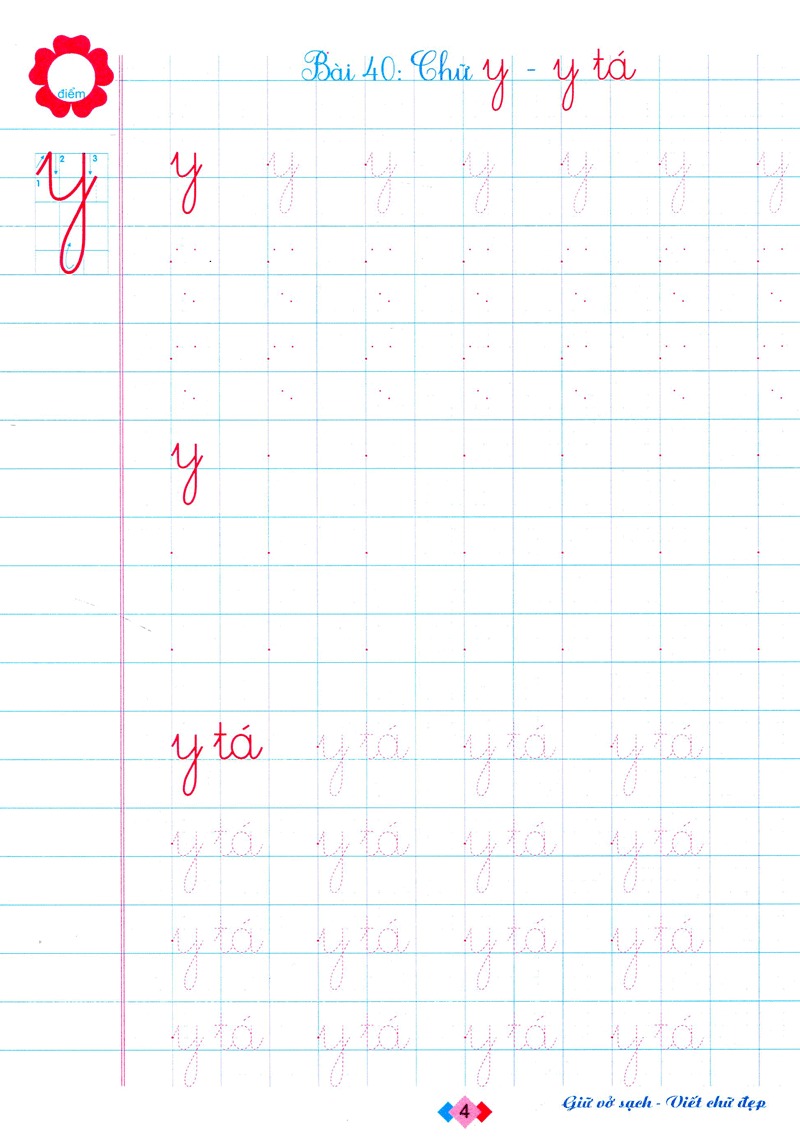 Bài 40: Chữ y - y tá
điểm
1 2 3
y y y y y y y y
y
y tá y tá y tá y tá
y tá y tá y tá y tá
y tá y tá y tá y tá
y tá y tá y tá y tá
4
Giữ vở sạch - Viết chữ đẹp